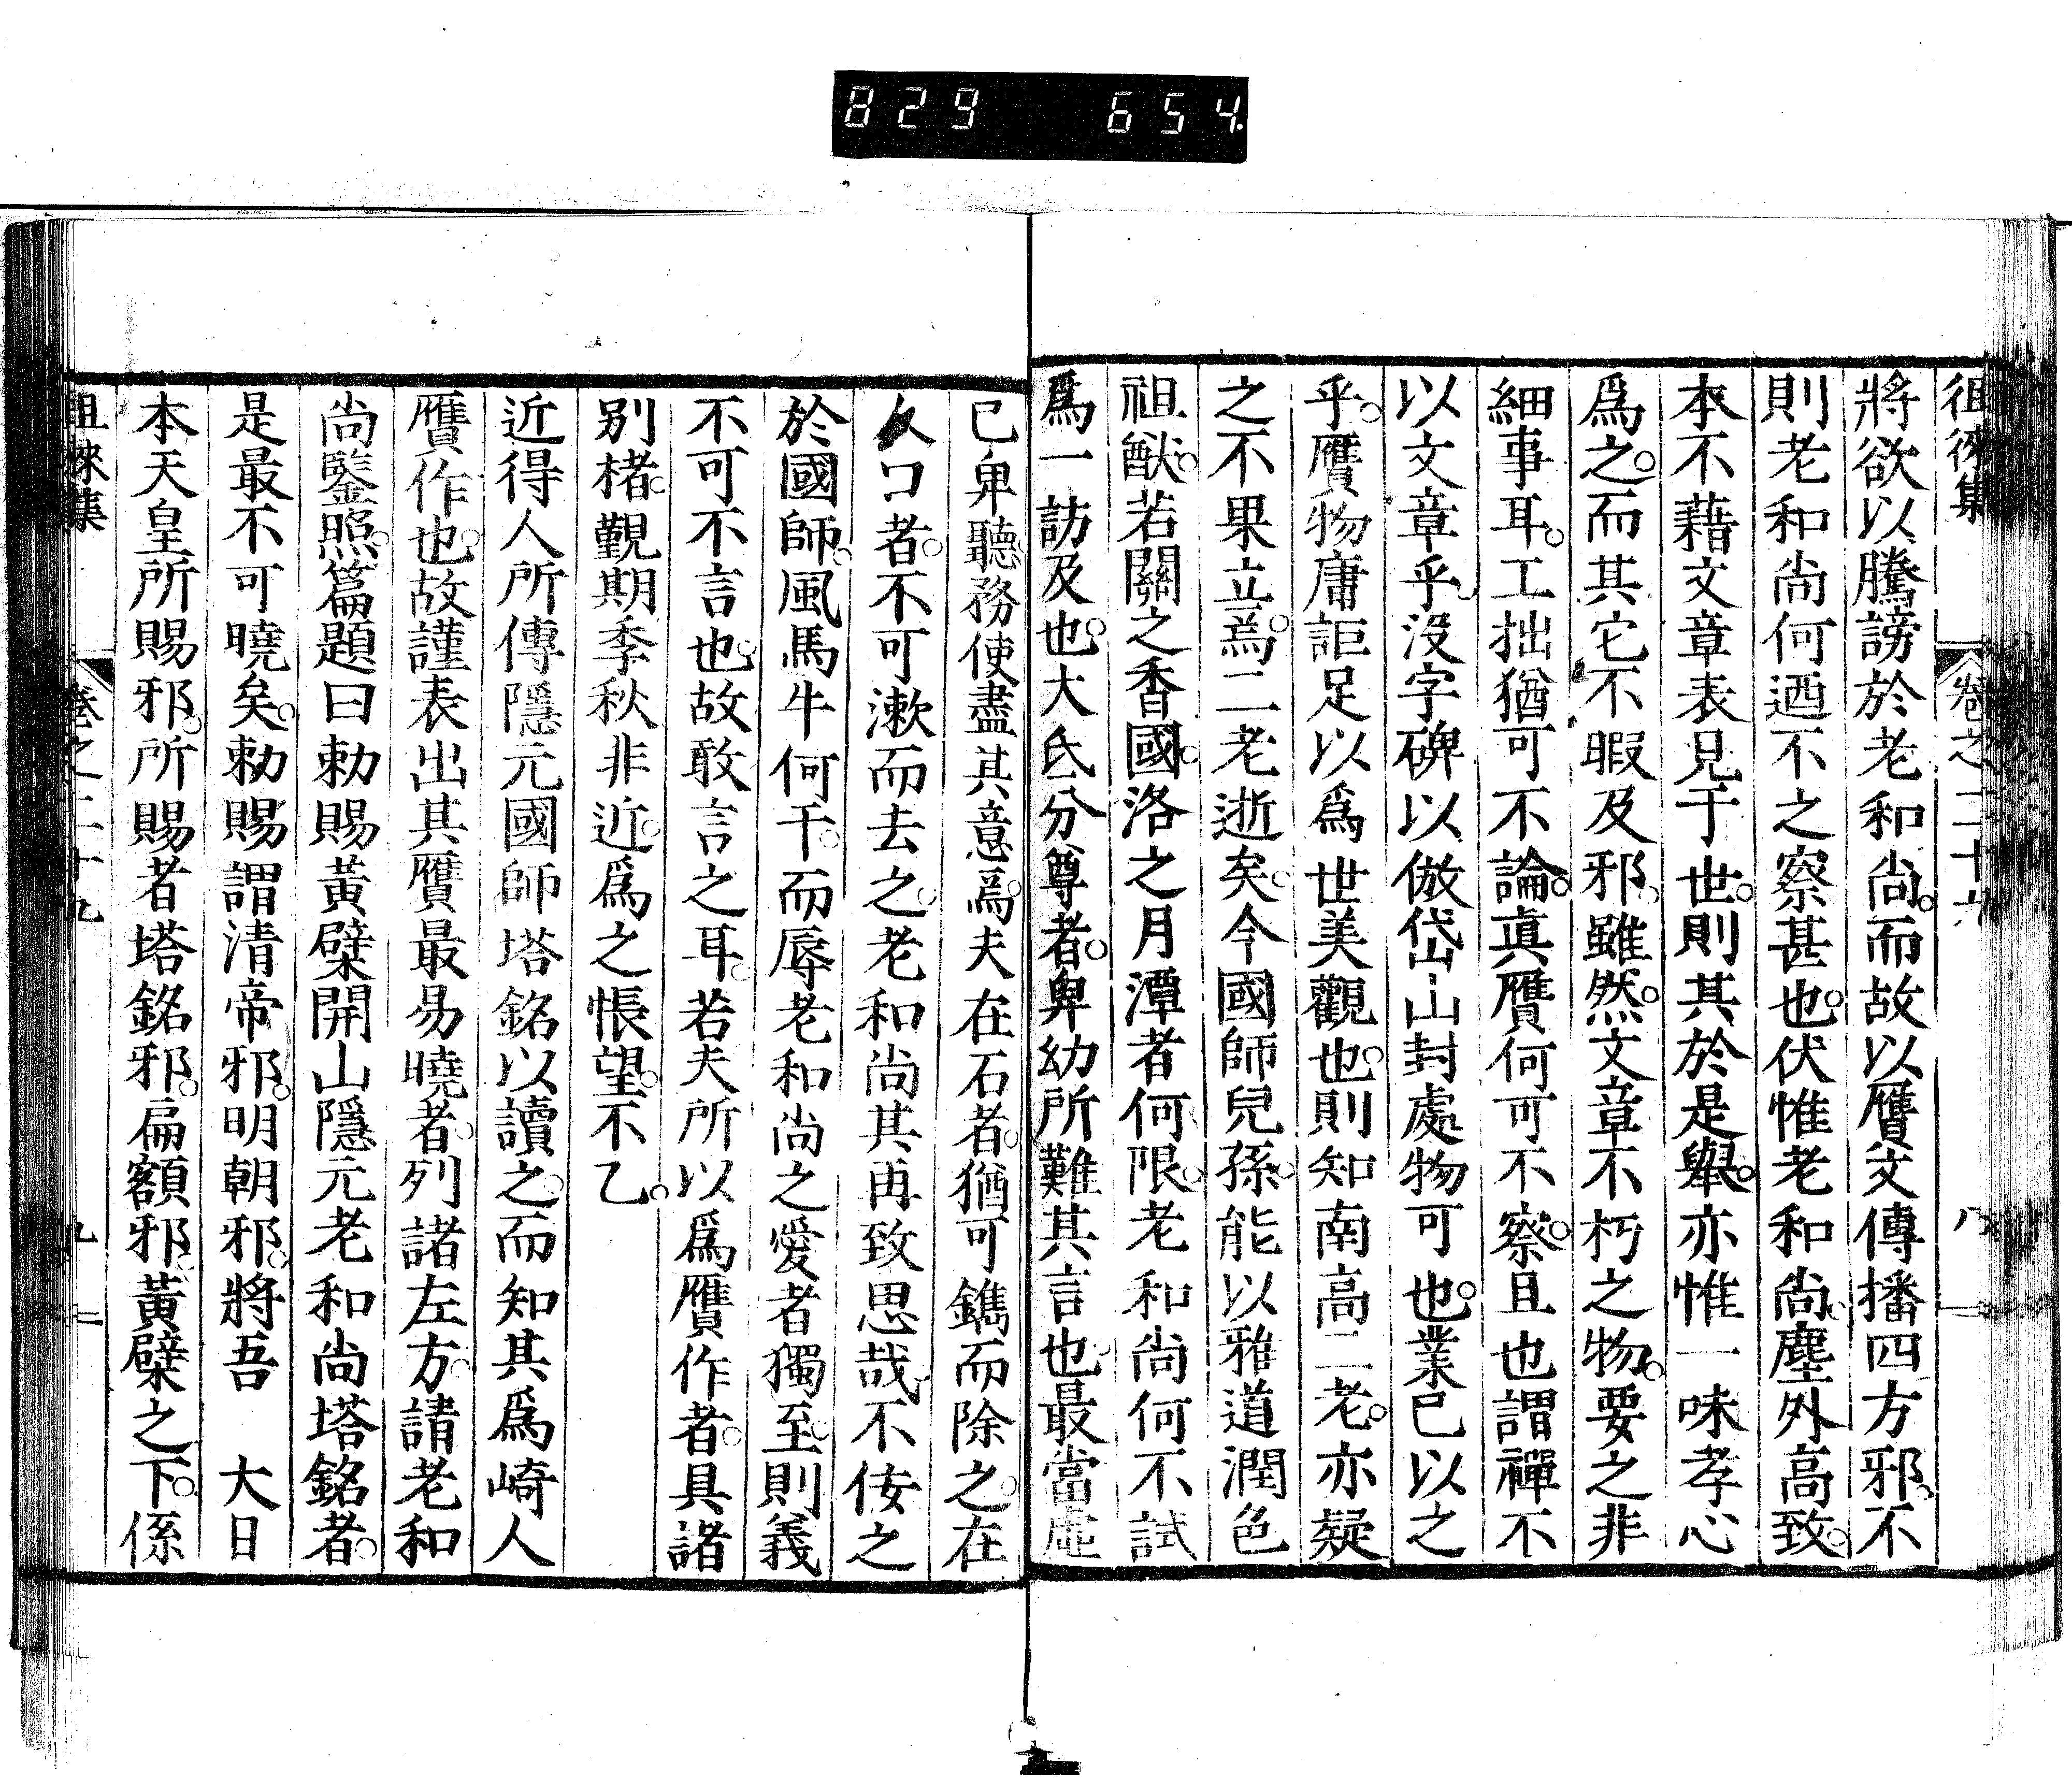 829 654
徂徠集 卷之二十九 八
將欲以騰謗於老和尚。而故以贋文傳播四方邪。不
則老和尚何迺不之察甚也。伏惟老和尚。塵外高致。
本不藉文章表見于世。則其於是舉。亦惟一味孝心
爲之。而其它不暇及邪。雖然。文章不朽之物。要之非
細事耳。工拙猶可不論。眞贋何可不察。且也謂禪不
以文章乎。沒字碑以倣岱山封處物可也。業已以之
乎。贋物庸詎足以爲世美觀也。則知南高二老。亦疑
之不果立焉。二老逝矣。今國師兒孫。能以雅道潤色
祖猷。若關之香國。洛之月潭者何限。老和尚何不試
爲一訪及也。大氐分尊者。卑幼所難其言也。最當虛
已卑聽。務使盡其意焉。夫在石者。猶可鐫而除之。在
人口者。不可漱而去之。老和尚其再致思哉。不佞之
於國師。風馬牛何干。而辱老和尚之愛者獨至。則義
不可不言也。故敢言之耳。若夫所以爲贋作者。具諸
别楮。覯期季秋非近。爲之悵望。不乙。
近得人所傳隱元國師塔銘以讀之。而知其爲崎人
贋作也。故謹表出其贋最易曉者。列諸左方。請老和
尚鑒照。篇題曰勅賜黃檗開山隱元老和尚塔銘者。
是最不可曉矣。勅賜謂清帝邪。明朝邪。將吾 大日
本天皇所賜邪。所賜者塔銘邪。扁額邪。黃檗之下。係
徂徠集 卷之二十九 九